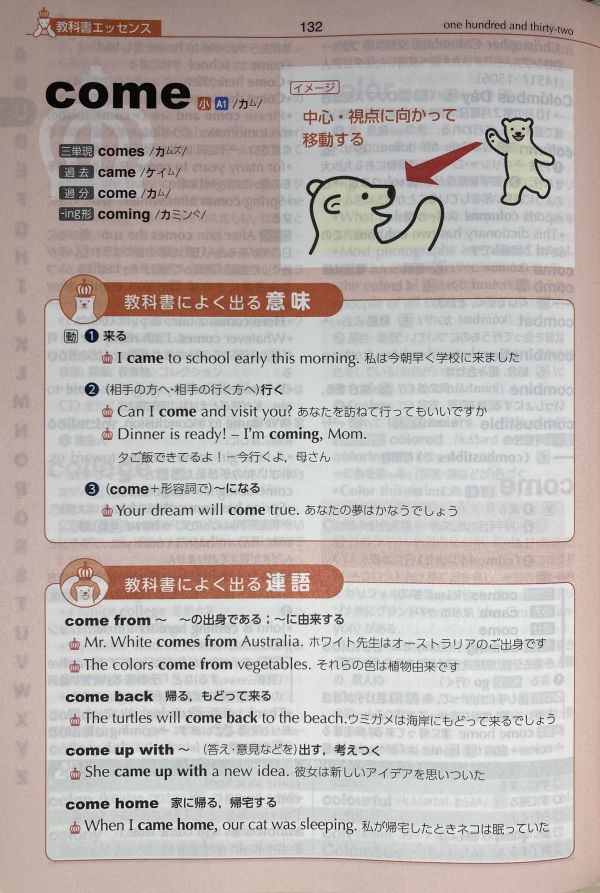 教科書エッセンス
132
one hundred and thirty-two
come 小 A1 /カム/
三単現 comes /カムズ/
過去 came /ケイム/
過分 come /カム/
-ing形 coming /カミンぐ/
イメージ
中心・視点に向かって
移動する
教科書によく出る意味
動 ❶ 来る
I came to school early this morning. 私は今朝早く学校に来ました
❷ (相手の方へ・相手の行く方へ)行く
Can I come and visit you? あなたを訪ねて行ってもいいですか
Dinner is ready! – I'm coming, Mom.
夕ご飯できてるよ！－今行くよ，母さん
❸ (come＋形容詞で)～になる
Your dream will come true. あなたの夢はかなうでしょう
教科書によく出る連語
come from ～ ～の出身である；～に由来する
Mr. White comes from Australia. ホワイト先生はオーストラリアのご出身です
The colors come from vegetables. それらの色は植物由来です
come back 帰る，もどって来る
The turtles will come back to the beach. ウミガメは海岸にもどって来るでしょう
come up with ～ (答え・意見などを)出す，考えつく
She came up with a new idea. 彼女は新しいアイデアを思いついた
come home 家に帰る，帰宅する
When I came home, our cat was sleeping. 私が帰宅したときネコは眠っていた